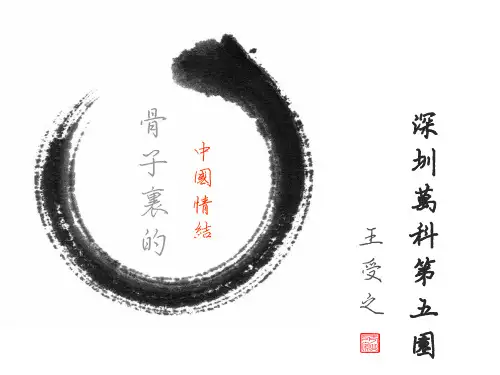 骨子裏的
中國情結
深圳萬科第五園
王受之